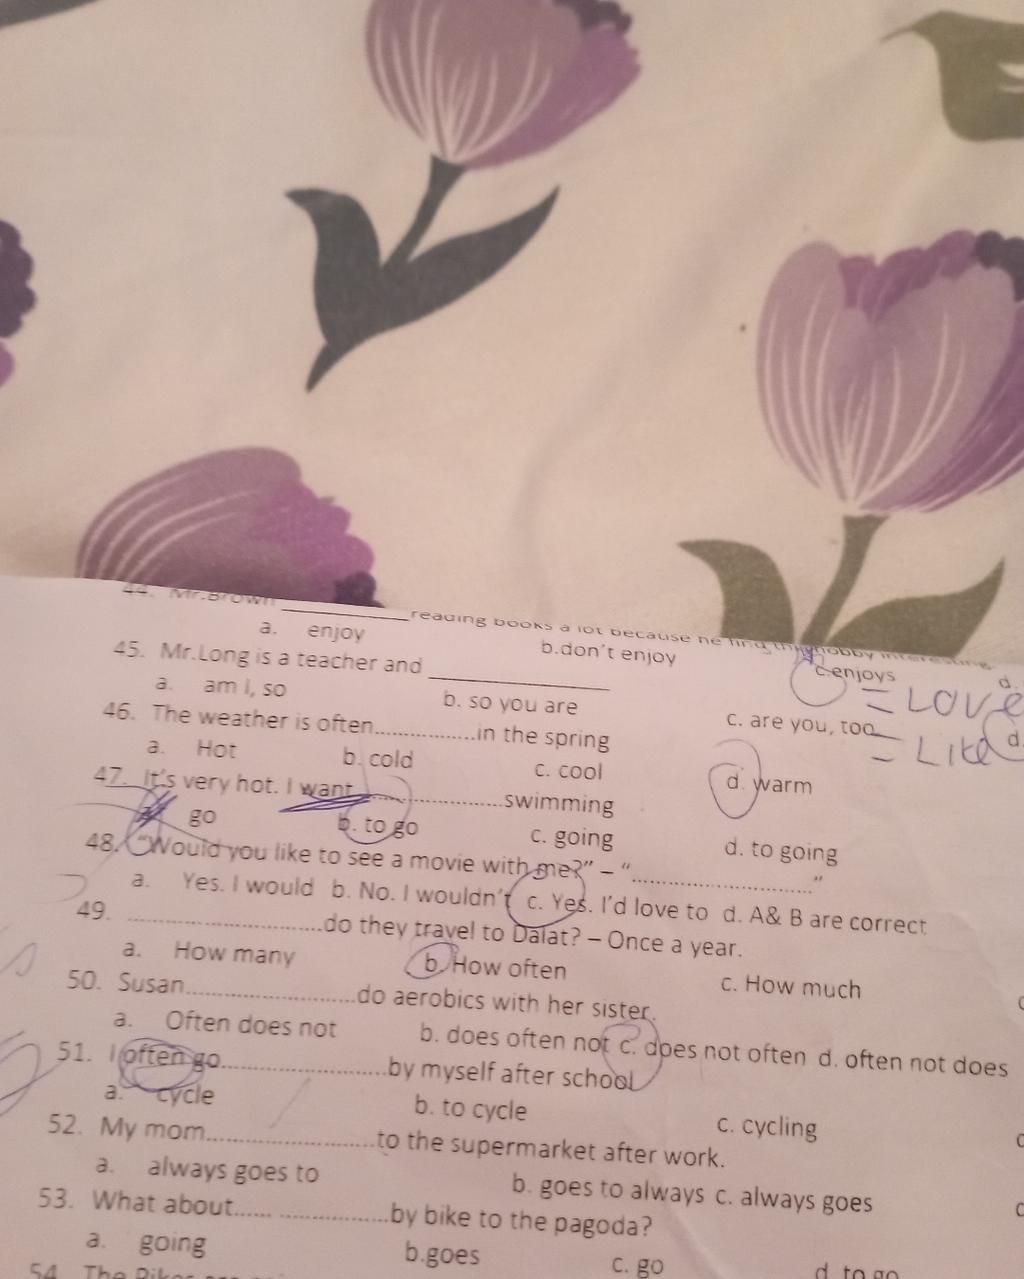 44. Mr.Brown ____________ reading books a lot because he find this hobby interesting.
a. enjoy b.don't enjoy c.enjoys d.
= LOVE
45. Mr.Long is a teacher and ____________
a. am I, so b. so you are c. are you, too d.
= Like
46. The weather is often.................in the spring
a. Hot b. cold c. cool d. warm
47. It's very hot. I want ........................swimming
a. go b. to go c. going d. to going
48. "Would you like to see a movie with me?" – "..............................."
a. Yes. I would b. No. I wouldn't c. Yes. I'd love to d. A& B are correct
49. .................................do they travel to Dalat? – Once a year.
a. How many b. How often c. How much
50. Susan.............................do aerobics with her sister.
a. Often does not b. does often not c. does not often d. often not does
51. I often go............................by myself after school
a. cycle b. to cycle c. cycling
52. My mom............................to the supermarket after work.
a. always goes to b. goes to always c. always goes
53. What about...... ..................by bike to the pagoda?
a. going b.goes c. go d. to go
54. The